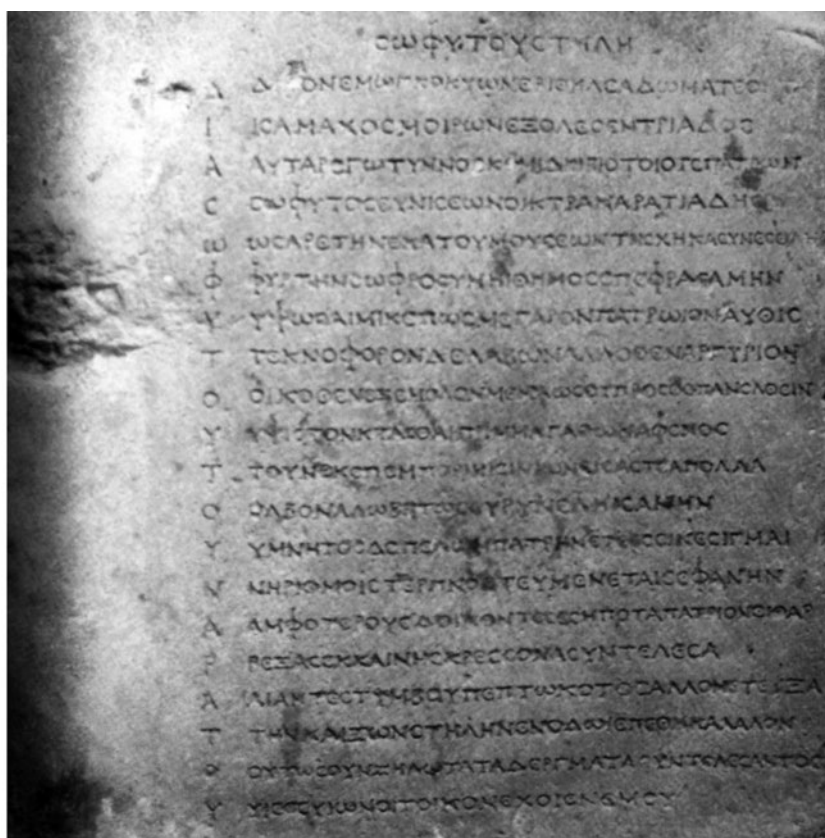 ΣΩΦΥΤΟΥΣΤΗΛΗ
Δ ΔΗΡΟΝΕΜΩΓΚΟΚΥΩΝΕΡΙΘΗΛΕΑΔΩΜΑΤΕΟΝΤΑ
Ι ΙΣΑΜΑΧΟΣΜΟΙΡΩΝΕΞΟΛΕΣΕΝΤΡΙΑΔΟΣ
Α ΑΥΤΑΡΕΓΩΤΥΝΝΟΣΚΟΜΙΔΗΙΒΙΟΤΟΙΟΤΕΠΑΤΡΩΝ
Σ ΣΩΦΥΤΟΣΕΥΝΙΣΕΩΝΟΙΚΤΡΑΝΑΡΑΤΙΑΔΗΣ
Ω ΩΣΑΡΕΤΗΝΕΚΑΤΟΥΜΟΥΣΕΩΝΤΗΣΧΗΚΑΣΥΝΕΣΘΛΗΙ
Φ ΦΥΡΤΗΝΣΩΦΡΟΣΥΝΗΙΘΗΜΟΣΕΠΕΦΡΑΣΑΜΗΝ
Υ ΥΨΩΣΑΙΜΙΚΕΠΩΣΜΕΓΑΡΟΝΠΑΤΡΩΙΟΝΑΥΘΙΣ
Τ ΤΕΚΝΟΦΟΡΟΝΔΕΛΑΒΩΝΑΛΛΟΘΕΝΑΡΓΥΡΙΟΝ
Ο ΟΙΚΟΘΕΝΕΞΕΜΟΛΟΝΜΕΜΑΩΣΟΥΠΡΟΣΘΕΠΑΝΕΛΘΕΙΝ
Υ ΥΨΙΣΤΟΝΚΤΑΣΘΑΙΠΡΙΜΜΑΓΑΘΩΝΑΦΕΝΟΣ
Τ ΤΟΥΝΕΚΕΠΕΜΠΟΡΙΗΙΣΙΝΙΩΝΕΙΣΑΣΤΕΑΠΟΛΛΑ
Ο ΟΛΒΟΝΑΛΩΒΗΤΩΣΕΥΡΥΝΕΛΗΙΣΑΜΗΝ
Υ ΥΜΝΗΤΟΣΔΕΠΕΛΩΝΠΑΤΡΗΝΕΤΕΕΣΣΙΝΕΣΙΓΜΑΙ
Ν ΝΗΡΙΘΜΟΙΣΤΕΡΠΝΟΣΤΕΥΜΕΝΕΤΑΙΣΕΦΑΝΗΝ
Α ΑΜΦΟΤΕΡΟΥΣΔΟΙΚΟΝΤΕΣΕΣΗΠΟΤΑΠΑΤΡΙΟΝΕΙΘΑΡ
Ρ ΡΕΞΑΣΕΚΚΑΙΝΗΣΚΡΕΣΣΟΝΑΣΥΝΤΕΛΕΣΑ
Α ΑΙΑΝΤΕΣΤΥΜΒΟΥΠΕΠΤΩΚΟΤΟΣΑΛΛΟΝΕΤΕΥΞΑ
Τ ΤΗΝΚΑΙΖΩΝΣΤΗΛΗΝΕΝΟΔΩΙΕΠΕΘΗΚΑΛΑΛΟΝ
Ο ΟΥΤΩΣΟΥΝΖΗΛΩΤΑΤΑΔΕΡΓΜΑΤΑΣΥΝΤΕΛΕΣΑΝΤΟΣ
Υ ΥΙΕΕΣΥΙΩΝΟΙΤΟΙΚΟΝΕΧΟΙΕΝΕΜΟΥ